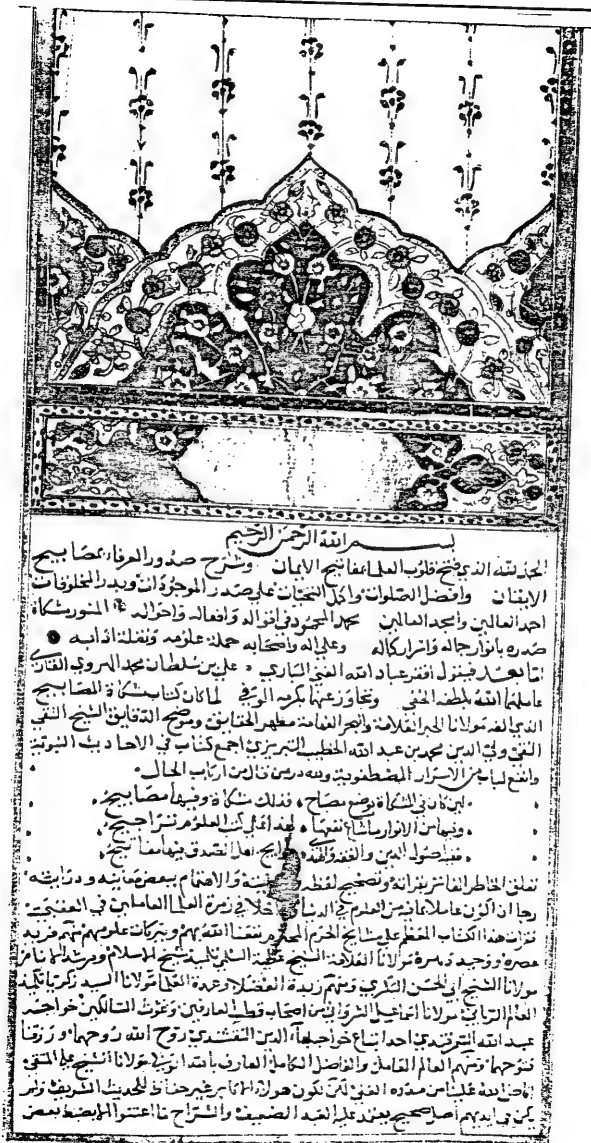 بسم الله الرحمن الرحيم
الحمد لله الذي فتح قلوب العلماء بمفاتيح الايمان وشرح صدور العرفاء بمصابيح
الايقان وافضل الصلوات واكمل التحيات على صدر الموجودات وبدر المخلوقات
احمد العالمين وامجد العالمين محمد المحمود في اقواله وافعاله واحواله المنور مشكاة
صدره بأنوار جماله واسرار كماله وعلى اله واصحابه حملة علومه ونقلة ادابه
اما بعد فيقول افقر عباد الله الغني الباري علي بن سلطان محمد الهروي القاري
عاملهما الله بلطفه الخفي وتجاوز عنهما بكرمه الوفي لما كان كتاب مشكاة المصابيح
الذي الفه مولانا الحبر العلامة والبحر الفهامة مظهر الحقايق وموضح الدقايق الشيخ التقي
النقي ولي الدين محمد بن عبد الله الخطيب التبريزي اجمع كتاب في الاحاديث النبوية
وانفع لباب من الاسرار المصطفوية ولله در من قال من ارباب الحال
لئن كان في المشكاة يوضع مصباح فذلك مشكاة وفيها مصابيح
وفيها من الانوار ما شاع نفعها لهذا على كتب العلوم تراجيح
ففيه اصول الدين والفقه والهدى حوايج اهل الصدق منه مفاتيح
تعلق الخاطر الفاتر بقراءته وتصحيح لفظه والاهتمام ببعض معانيه ودرايته
رجا ان اكون عاملا بما فيه من العلوم في الدنيا داخلا في زمرة العلما العاملين في العقبى
فقرأت هذا الكتاب المعظم على مشايخ الحرم المحترم نفعنا الله بهم وببركات علومهم منهم فريد
عصره ووحيد دهره مولانا العلامة الشيخ عطية السلمي تلميذ شيخ الاسلام ومرشد الانام
مولانا الشيخ ابي الحسن البكري ومنهم زبدة الفضلا وعمدة العلما مولانا السيد زكريا تلميذ
العالم الرباني مولانا اسماعيل الشرواني من اصحاب قطب العارفين وغوث السالكين خواجه
عبيد الله السمرقندي احد اتباع خواجه بهاء الدين النقشبندي روح الله روحهما ورزقنا
فتوحهما ومنهم العالم العامل والفاضل الكامل العارف بالله الولي مولانا الشيخ علي المتقي
افاض الله علينا من مدده العلي لكن لكون هولاء الاكابر غير حفاظ للحديث الشريف ولم
يكن في ايديهم اصل صحيح يعتمد عليه العبد الضعيف والشراح ما اعتنوا الا بضبط بعض